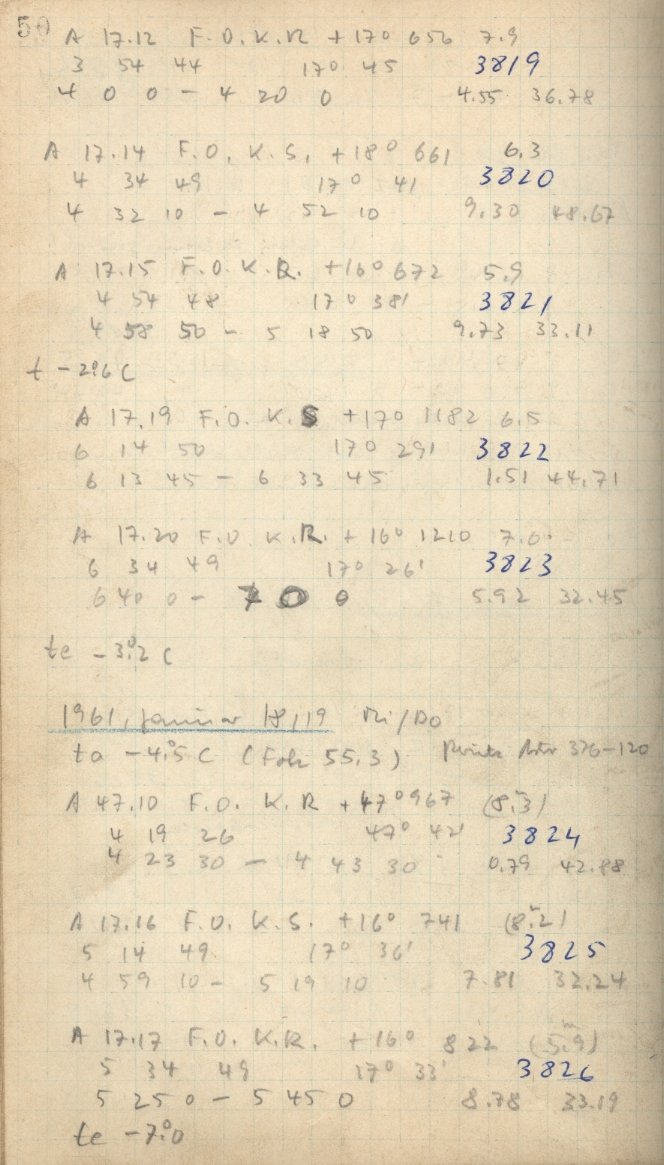 50
A 17.12 F.O. K.R +17° 656 7.9
3 54 44 17° 45 3819
4 0 0 - 4 20 0 4.55 36.78
A 17.14 F.O. K.S. +18° 661 6.3
4 34 49 17° 41 3820
4 32 10 - 4 52 10 9.30 48.67
A 17.15 F.O. K.R. +16° 672 5.9
4 54 48 17° 38' 3821
4 58 50 - 5 18 50 9.73 33.11
t -2.6 C
A 17.19 F.O. K.S +17° 1182 6.5
6 14 50 17° 29' 3822
6 13 45 - 6 33 45 1.51 44.71
A 17.20 F.O K.R. +16° 1210 7.0
6 34 49 17° 26' 3823
6 40 0 - 7 0 0 5.92 32.45
te -3.°2 C
1961, Januar 18/19 Mi/Do
ta -4.°5 C (Fok 55.3) 376-120
A 47.10 F.O. K.R +47° 967 (8.3)
4 19 26 47° 42' 3824
4 23 30 - 4 43 30 0.79 42.88
A 17.16 F.O. K.S. +16° 741 (8.2)
5 14 49 17° 36' 3825
4 59 10 - 5 19 10 7.81 32.24
A 17.17 F.O. K.R. +16° 822 (5.9)
5 34 49 17° 33' 3826
5 25 0 - 5 45 0 8.78 33.19
te -7.°0